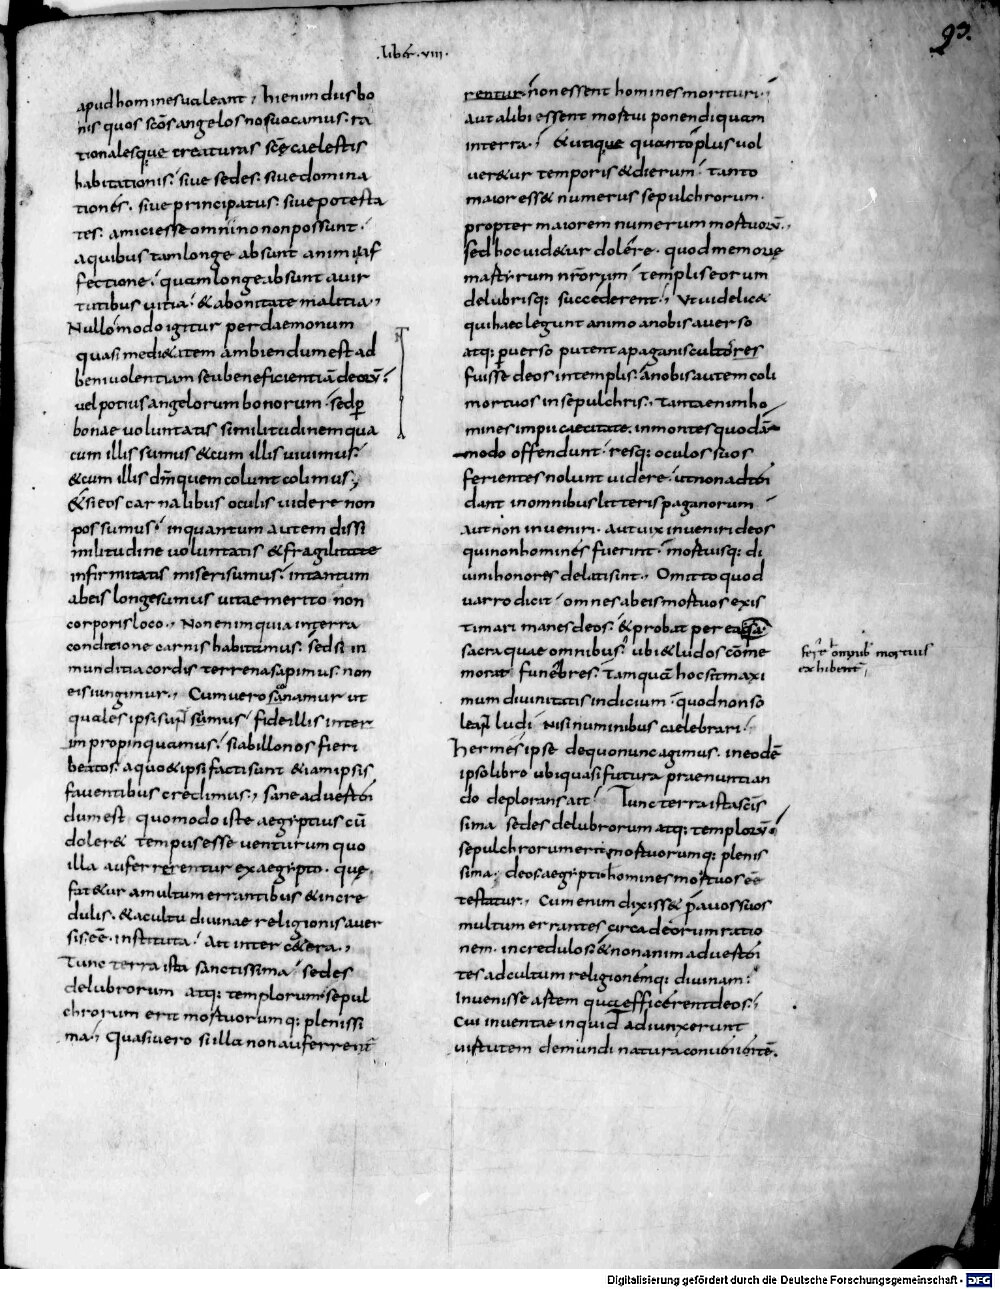 .liber.viii.
93.
apud homines ualeant; hi enim duobo
nis quos scōs angelos nos uocamus. ra
tionalesque creaturas scę caelestis
habitationis. siue sedes. siue domina
tiones. siue principatus. siue potesta
tes. amici esse omnino non possunt.
a quibus tam longe absunt animi af
fectione. quam longe absunt a uir
tutibus uitia. & a bonitate malitia;
Nullo modo igitur per daemonum
quasi medi&atem ambiendum est ad
beniuolentiam seu beneficientiā deorū.
uel potius angelorum bonorum. sed p̄
bonae uoluntatis similitudinem qua
cum illis sumus & cum illis uiuimus.
& cum illis dm̄ quem colunt colimus;
& si eos carnalibus oculis uidere non
possumus. in quantum autem dissi
militudine uoluntatis & fragilitate
infirmitatis miseri sumus. in tantum
ab eis longe sumus uitae merito non
corporis loco; Non enim quia in terra
conditione carnis habitamus. sed si in
munditia cordis terrena sapimus. non
eis iungimur; Cum uero sanamur ut
quales ipsi sunt simus. fide illis inter
im propinquamus. si ab illo nos fieri
beatos. a quo & ipsi facti sunt & iam ipsis
fauentibus credimus; sane aduerten
dum est quomodo iste aegyptius cū
doler& tempus esse uenturum quo
illa auferrerentur ex aegypto. quę
fat&ur a multum errantibus & incre
dulis. & a cultu diuinae religionis auer
sis. eē. instituta. Ait inter c&era;
Tunc terra ista sanctissima. sedes
delubrorum atq; templorum. sepul
chrorum erit mortuorum q; plenissi
ma; Quasi uero si illa non auferrent̄
rentur. n̄ non essent homines morituri.
aut alibi essent mortui ponendi quam
in terra. & utique quanto plus uol
uer&ur temporis & dierum. tanto
maior ess& numerus sepulchrorum.
propter maiorem numerum mortuorū;
sed hoc uid&ur dolere. quod memorię
martyrum nr̄orum templis eorum
delubrisq; succederent; Ut uidelic&
qui haec legunt animo a nobis auerso
atq; peruerso putent a paganis cultores
fuisse deos in templis. a nobis autem coli
mortuos in sepulchris; Tanta enim ho
mines impii caecitate. in montes quodā
modo offendunt. resq; oculos suos
ferientes nolunt uidere. ut non adten
dant in omnibus litteris paganorum
aut non inueniri. aut uix inueniri deos
qui non homines fuerint. mortuisq; di
uini honores delati sint; Omitto quod
uarro dicit. omnes ab eis mortuos exis
timari manes deos. & probat per ea
sacra quae omnibus. ubi & ludos cōme
morat funebres. tamquā hoc sit maxi
mum diuinitatis indicium. quod non so
leant ludi nisi numinibus caelebrari.
Hermes ipse de quo nunc agimus. in eodē
ipso libro ubi quasi futura praenuntian
do deplorans ait. Tunc terra ista scīs
sima sedes delubrorum atq; templorū.
sepulchrorum erit mortuorumq; plenis
sima. deos aegypti homines mortuos eē
testatur; Cum enim dixiss& p̄auos suos
multum errantes circa deorum ratio
nem. incredulos. & non animaduerten
tes ad cultum religionemq; diuinam.
Inuenisse artem qua efficerent deos.
Cui inuentae inquid Adiunxerunt
uirtutem de mundi natura conuenientē.
mortuis
exhibent̄
Digitalisierung gefördert durch die Deutsche Forschungsgemeinschaft - DFG